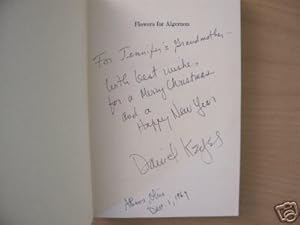 Flowers for Algernon
For Jennifer's Grandmother –
With best wishes
for a Merry Christmas
and a
Happy New Year
Daniel Keyes
Athens, Ohio
Dec. 1, 1969